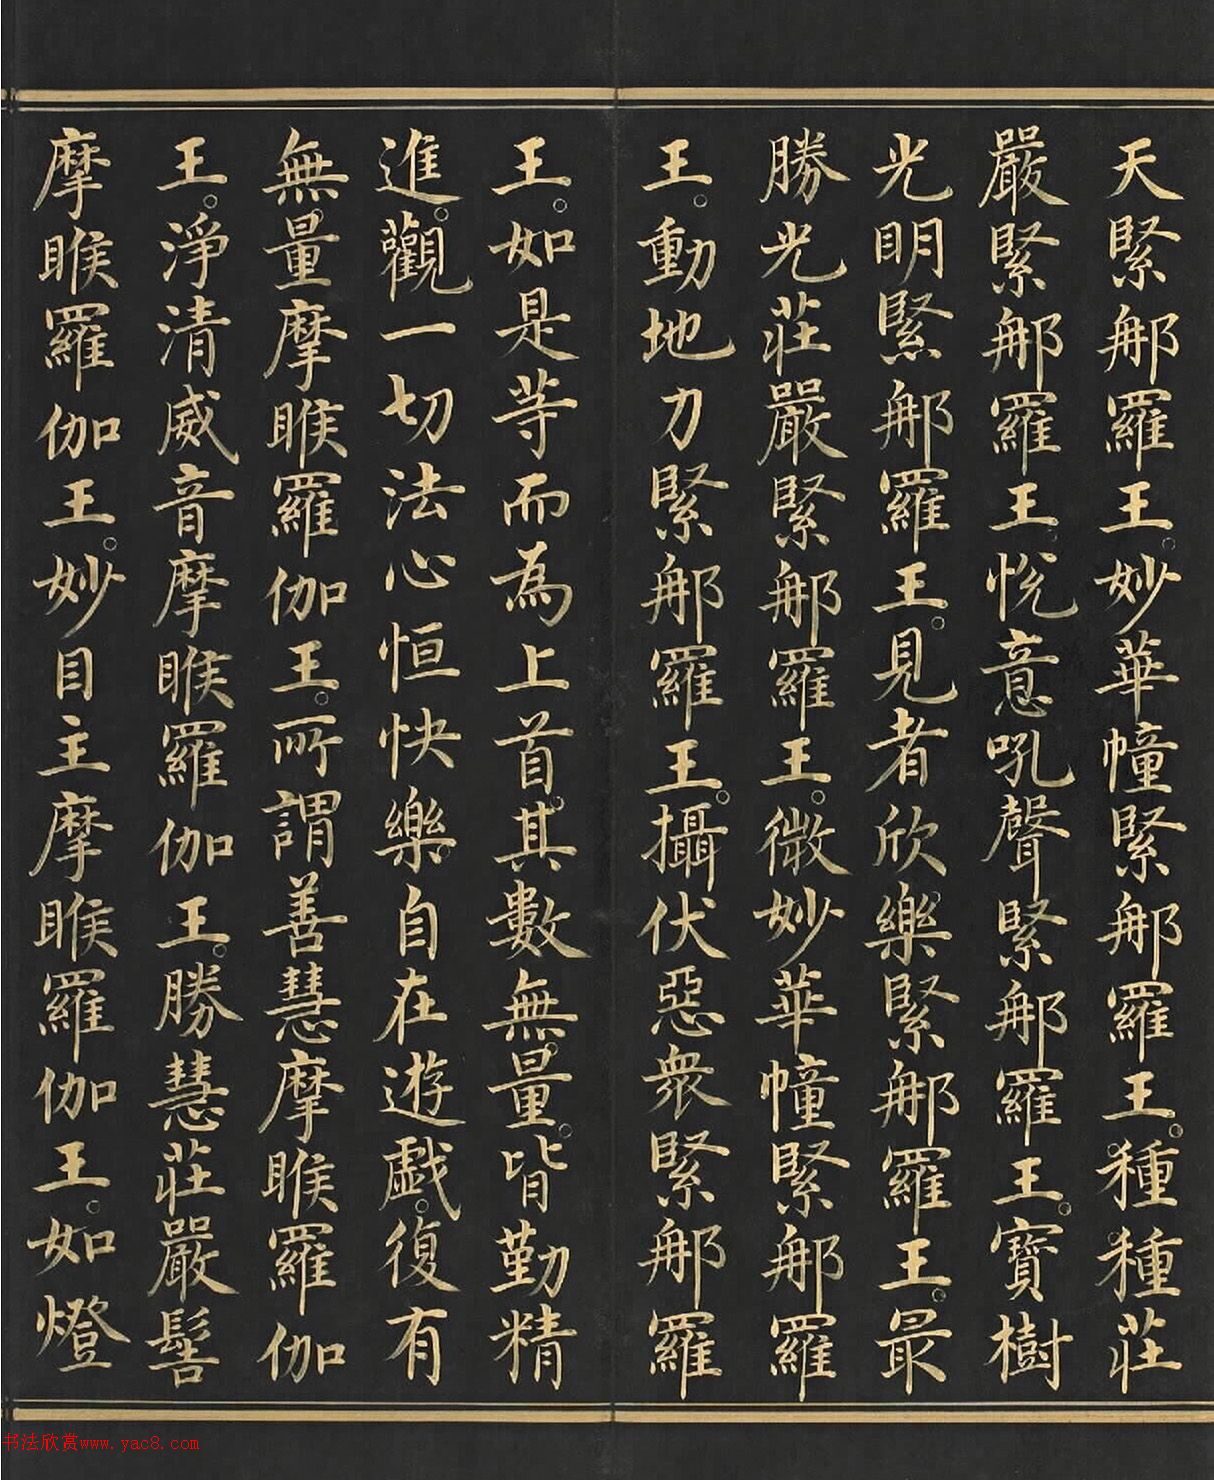 天緊那羅王。妙華幢緊那羅王。種種莊
嚴緊那羅王。悅意吼聲緊那羅王。寶樹
光明緊那羅王。見者欣樂緊那羅王。最
勝光莊嚴緊那羅王。微妙華幢緊那羅
王。動地力緊那羅王。攝伏惡衆緊那羅
王。如是等而為上首。其數無量。皆勤精
進。觀一切法心恒快樂自在遊戲。復有
無量摩睺羅伽王。所謂善慧摩睺羅伽
王。淨清威音摩睺羅伽王。勝慧莊嚴髻
摩睺羅伽王。妙目主摩睺羅伽王。如燈
书法欣赏www.yac8.com